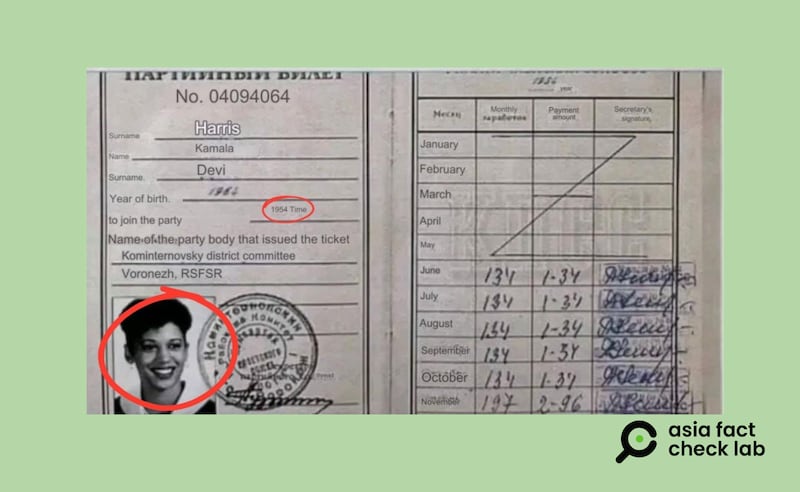 ПАРТИЙНЫЙ БИЛЕТ
No. 04094064
Surname Harris
Name Kamala
Surname. Devi
Year of birth.
1954 Time
to join the party
Name of the party body that issued the ticket
Kominternovsky district committee
Voronezh, RSFSR
year
Месяц Monthly заработок Payment amount Secretary's signature
January
February
March
April
May
June 134 1-34
July 134 1-34
August 134 1-34
September 134 1-34
October 134 1-34
November 197 2-96
asia fact
check lab